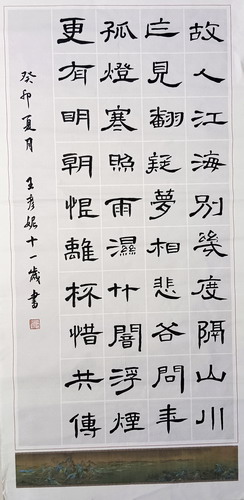 故人江海別幾度隔山川
乍見翻疑夢相悲各問年
孤燈寒照雨濕竹闇浮煙
更有明朝恨離杯惜共傳
癸卯夏月 王彦十一歲書